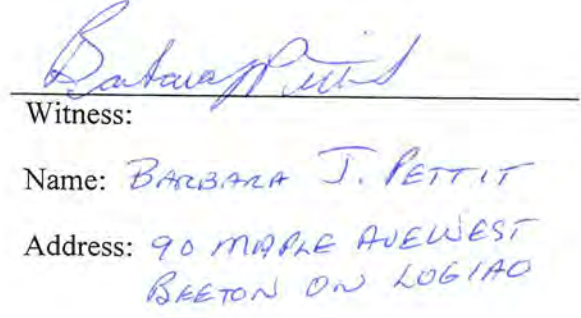 Barbara J Pettit
Witness:
Name: BARBARA J. PETTIT
Address: 90 MAPLE AVE WEST
BEETON ON L0G1A0